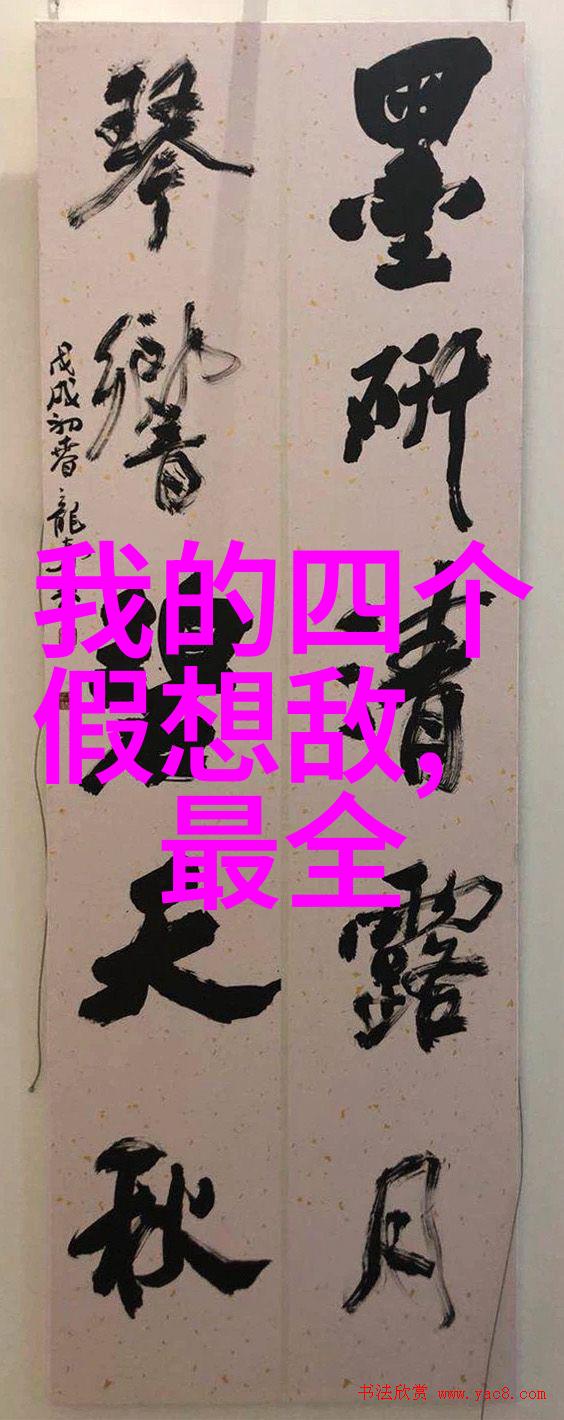 墨研清露月
琴響碧天秋
戊戌初春龍
我的四个
假想敌,
最全
书法欣赏 www.yac8.com